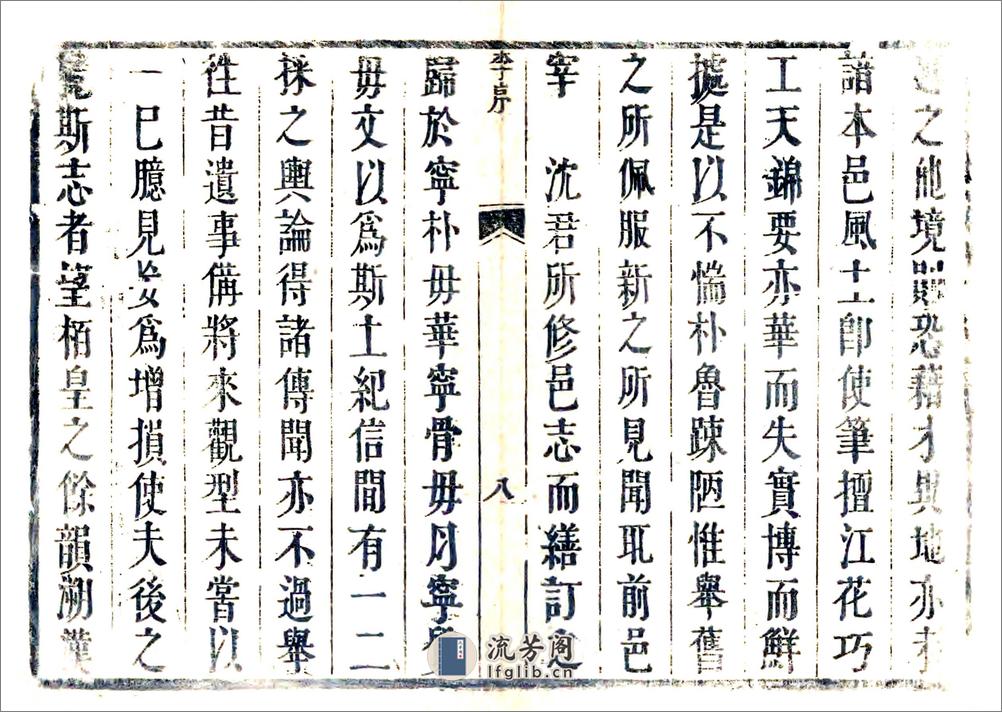 之他境則恐藉才異地亦未
諳本邑風土即使筆擅江花巧
工天錦要亦華而失實博而鮮
據是以不惴朴魯踈陋惟舉舊
之所佩服新之所見聞取前邑
宰　沈君所修邑志而繕訂之
李序
八
歸於寧朴毋華寧骨毋肉寧質
毋文以爲斯土紀信間有一二
採之輿論得諸傳聞亦不過舉
徃昔遺事備將來觀型未嘗以
一巳臆見妄爲增損使夫後之
覽斯志者望栢皇之餘韻溯漢
流芳阁
lfglib.cn